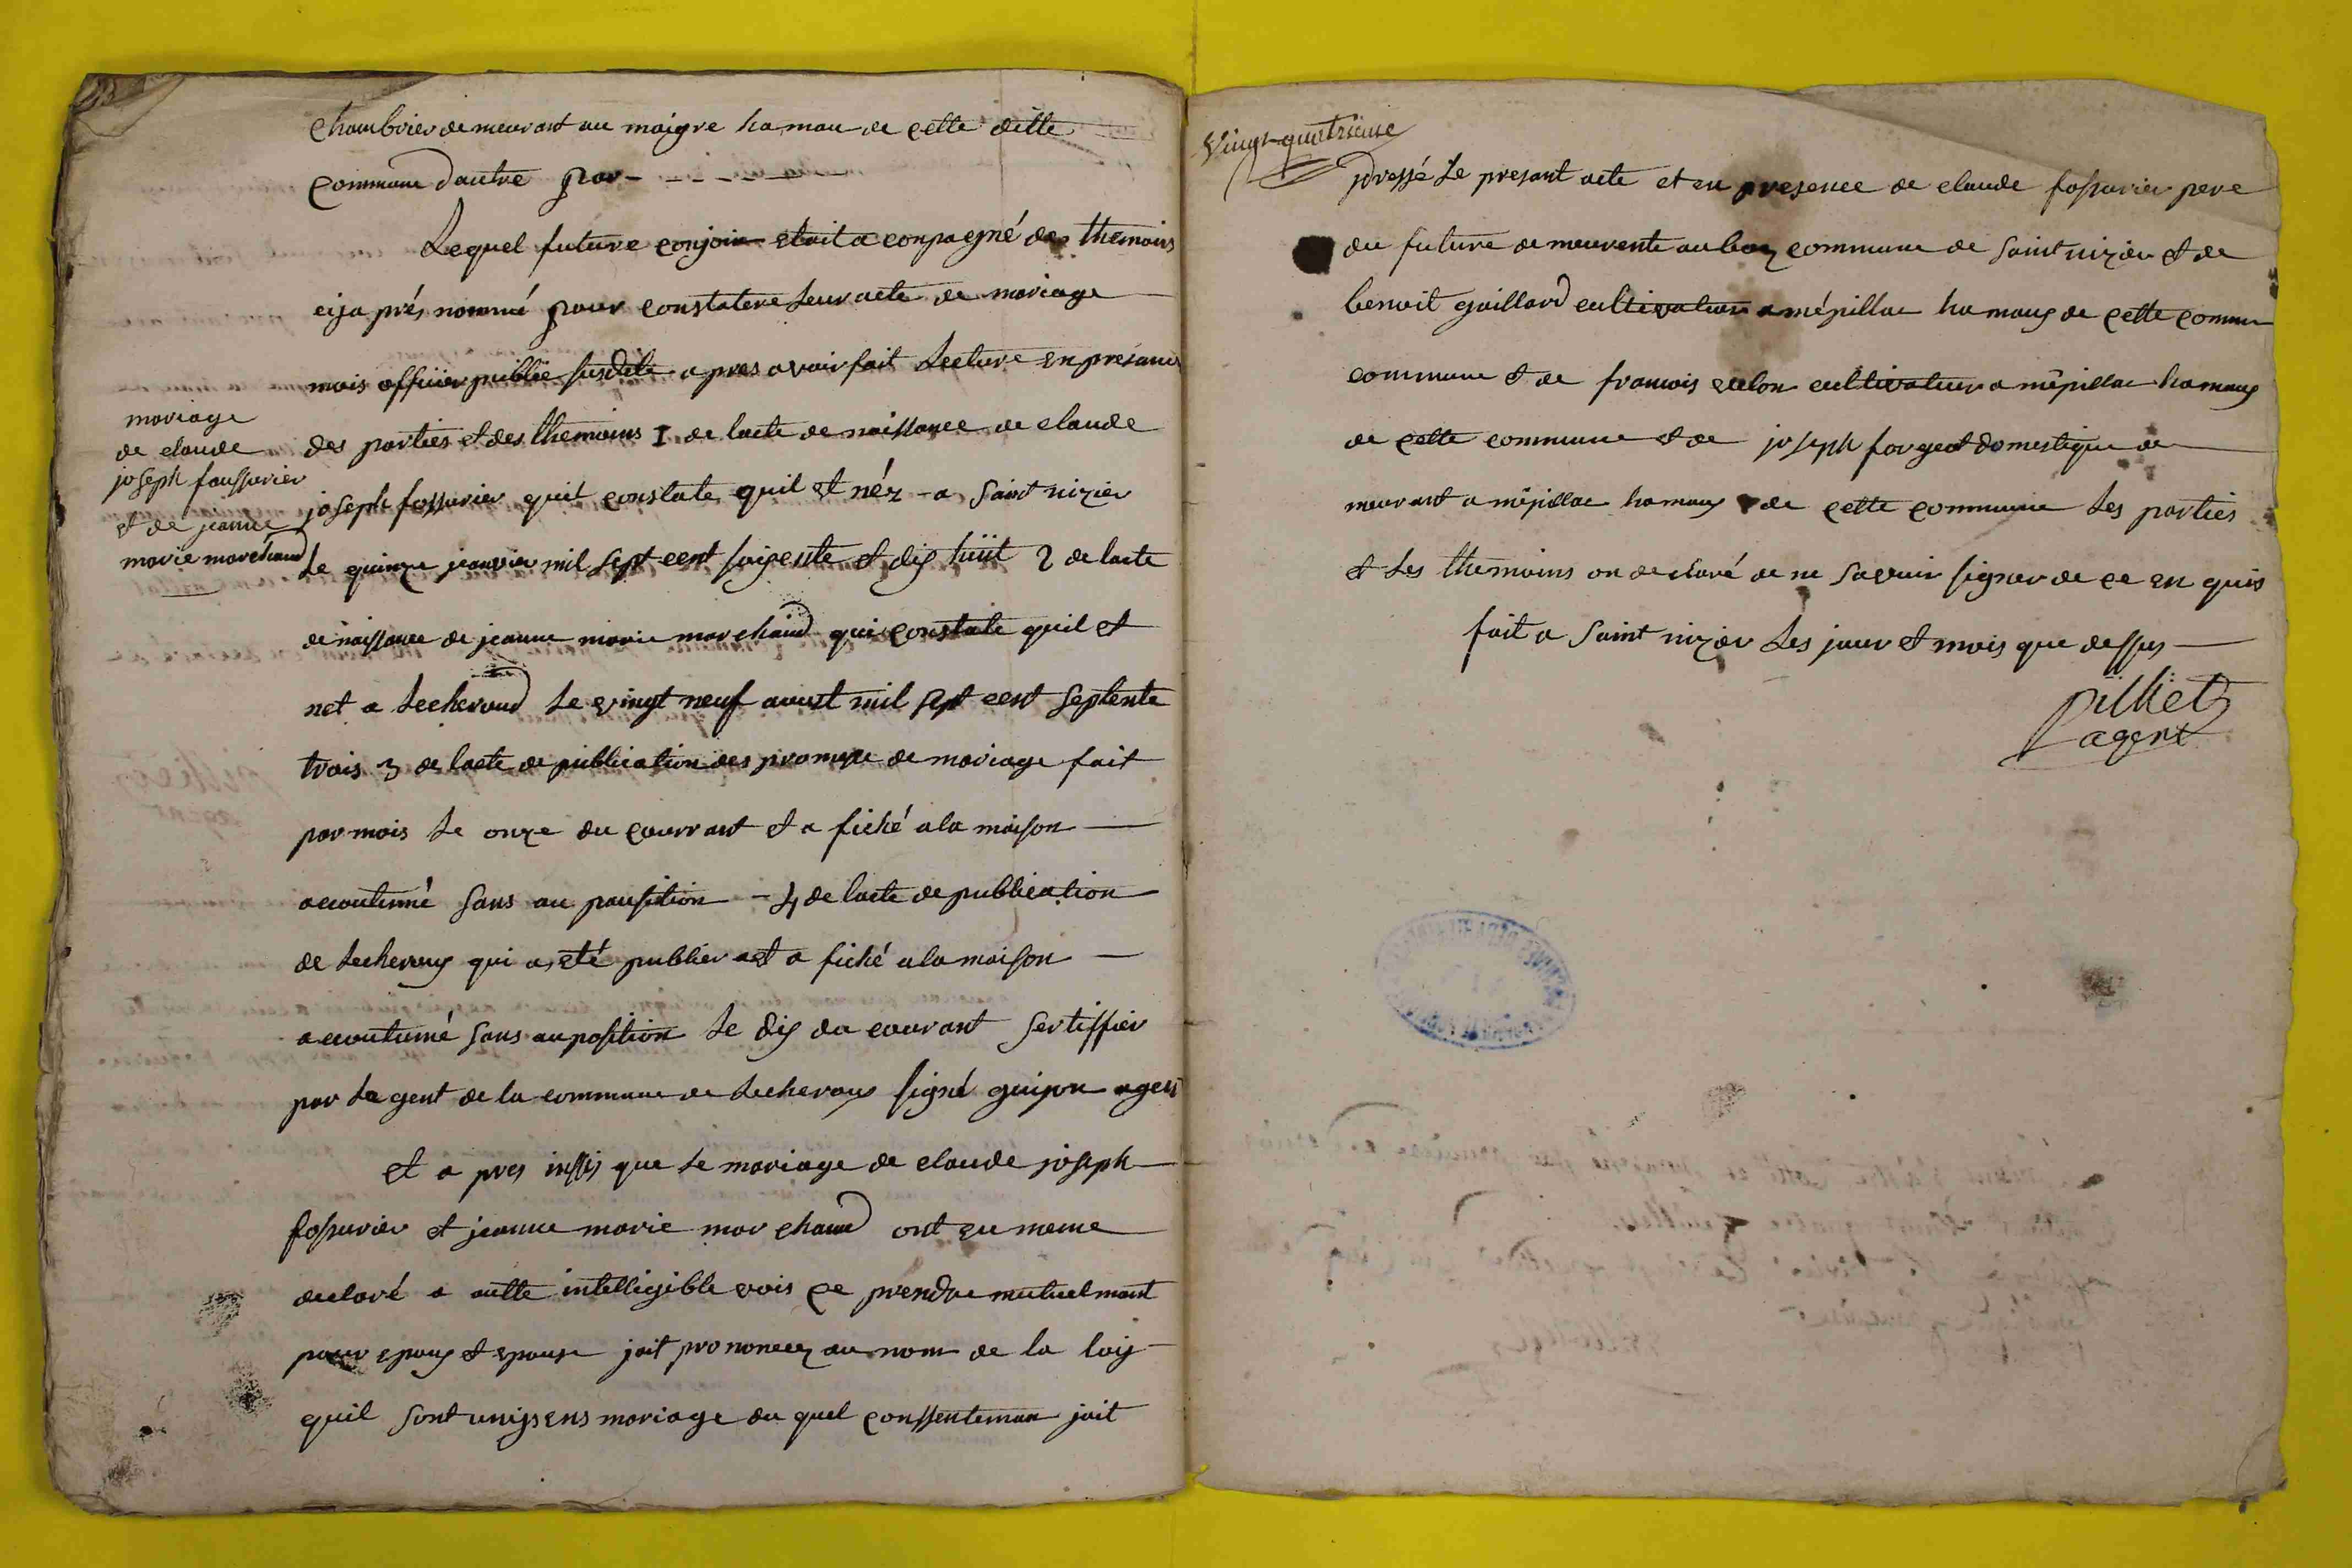 chambrier demeurant au maigre hamau de cette ditte
commune dautre par - - - - -
Lequel future conjoin etoit a conpagné des themoins
cija prés nommé pour constatere leur acte de mariage
mois officier publie susdite a pres avoir fait Lecture en presance
mariage
de claude
joseph foussurier
et de jeanne
marie marchand
des parties et des themoins 1 de lacte de naissance de claude
joseph fossurier quil constate quil et néz a saint nizier
le quinze janvier mil sept cent soigente et dix huit 2 de lacte
de naissance de jeanne marie marchand qui constate quil et
net a Lecheroud le vingt neuf aoust mil sept cent septente
trois 3 de lacte de publication des promese de mariage fait
par mois le onze du courrant et a fiché a la maison
acoutumé sans au pausition - 4 de lacte de publication
de Lecheroux qui a eté publier et a fiché a la maison
acoutumé sans auposition le dix du courant sertiffier
par Lagent de la commune de Lecheroux signé guipon agen
et a pres insis que le mariage de claude joseph
fossurier et jeanne marie marchand ont eu meme
declaré a autte intelligible vois ce prendre mutuelmant
pour epoux et epouse jait prononcez au nom de la loiy
quil sont unijs ens mariage du quel conssenteman jait
Vingt-quatrieme
dressé le presant acte et en presence de claude fossurier pere
du future demeurente au bouz commune de saint nizier et de
benoit gaillard cultivateur a mépillac hamaux de cette commu
commune et de francois cultivateur a mépillac hamaux
de cette commune et de joseph forgeot domestique de
meurant a mépillac hamaux de cette commune les parties
et les themoins on declaré de ne savoir signer de ce en quis
fait a saint nizier les jour et mois que dessus
pilliet
agent